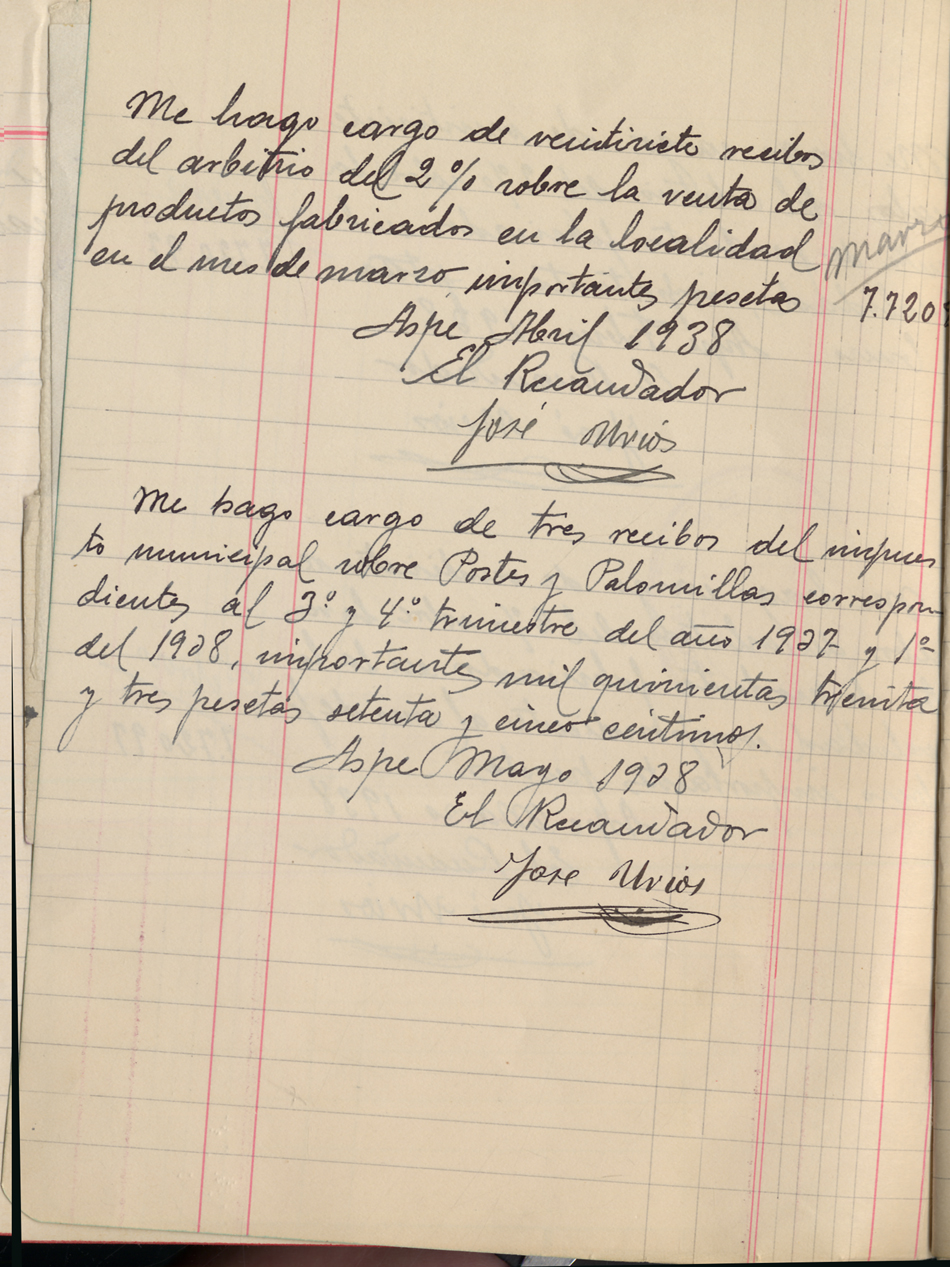 Me hago cargo de veintisiete recibos
del arbitrio del 2 % sobre la venta de
productos fabricados en la localidad
en el mes de marzo, importantes pesetas
Marzo
7.720
Aspe Abril 1938
El Recaudador
José Urios
Me hago cargo de tres recibos del impues
to municipal sobre Postes y Palomillas correspon-
dientes al 3º y 4º trimestre del año 1937 y 1º
del 1938, importantes mil quinientas treinta
y tres pesetas setenta y cinco centimos.
Aspe Mayo 1938
El Recaudador
Jose Urios